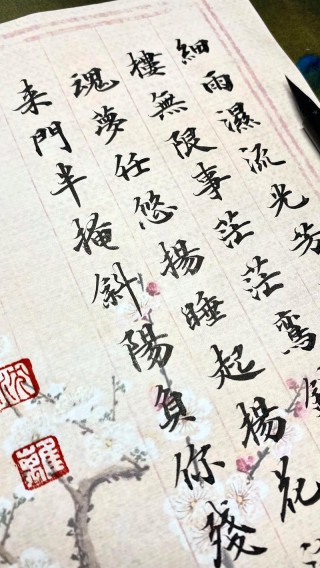 細雨濕流光芳
樓無限事茫茫鸞
魂夢任悠揚睡起揚花
来門半掩斜陽負你殘